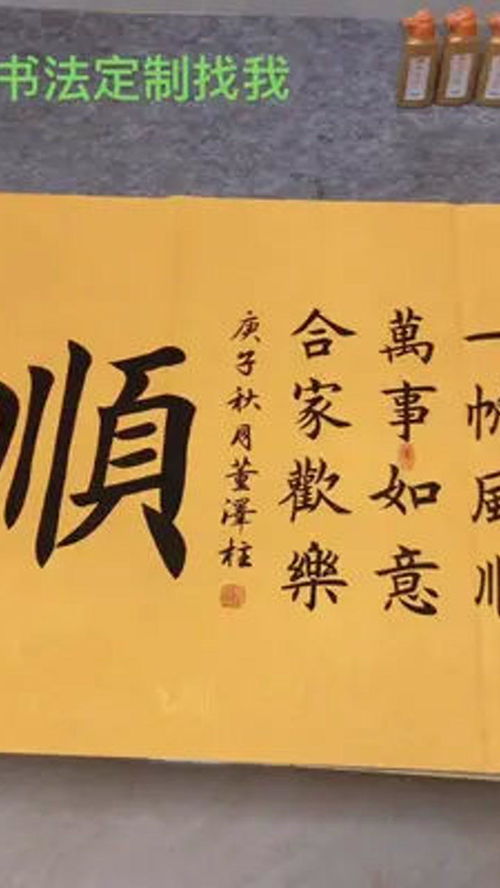 书法定制找我
一帆風
萬事如意
合家歡樂
庚子秋月董澤柱
順